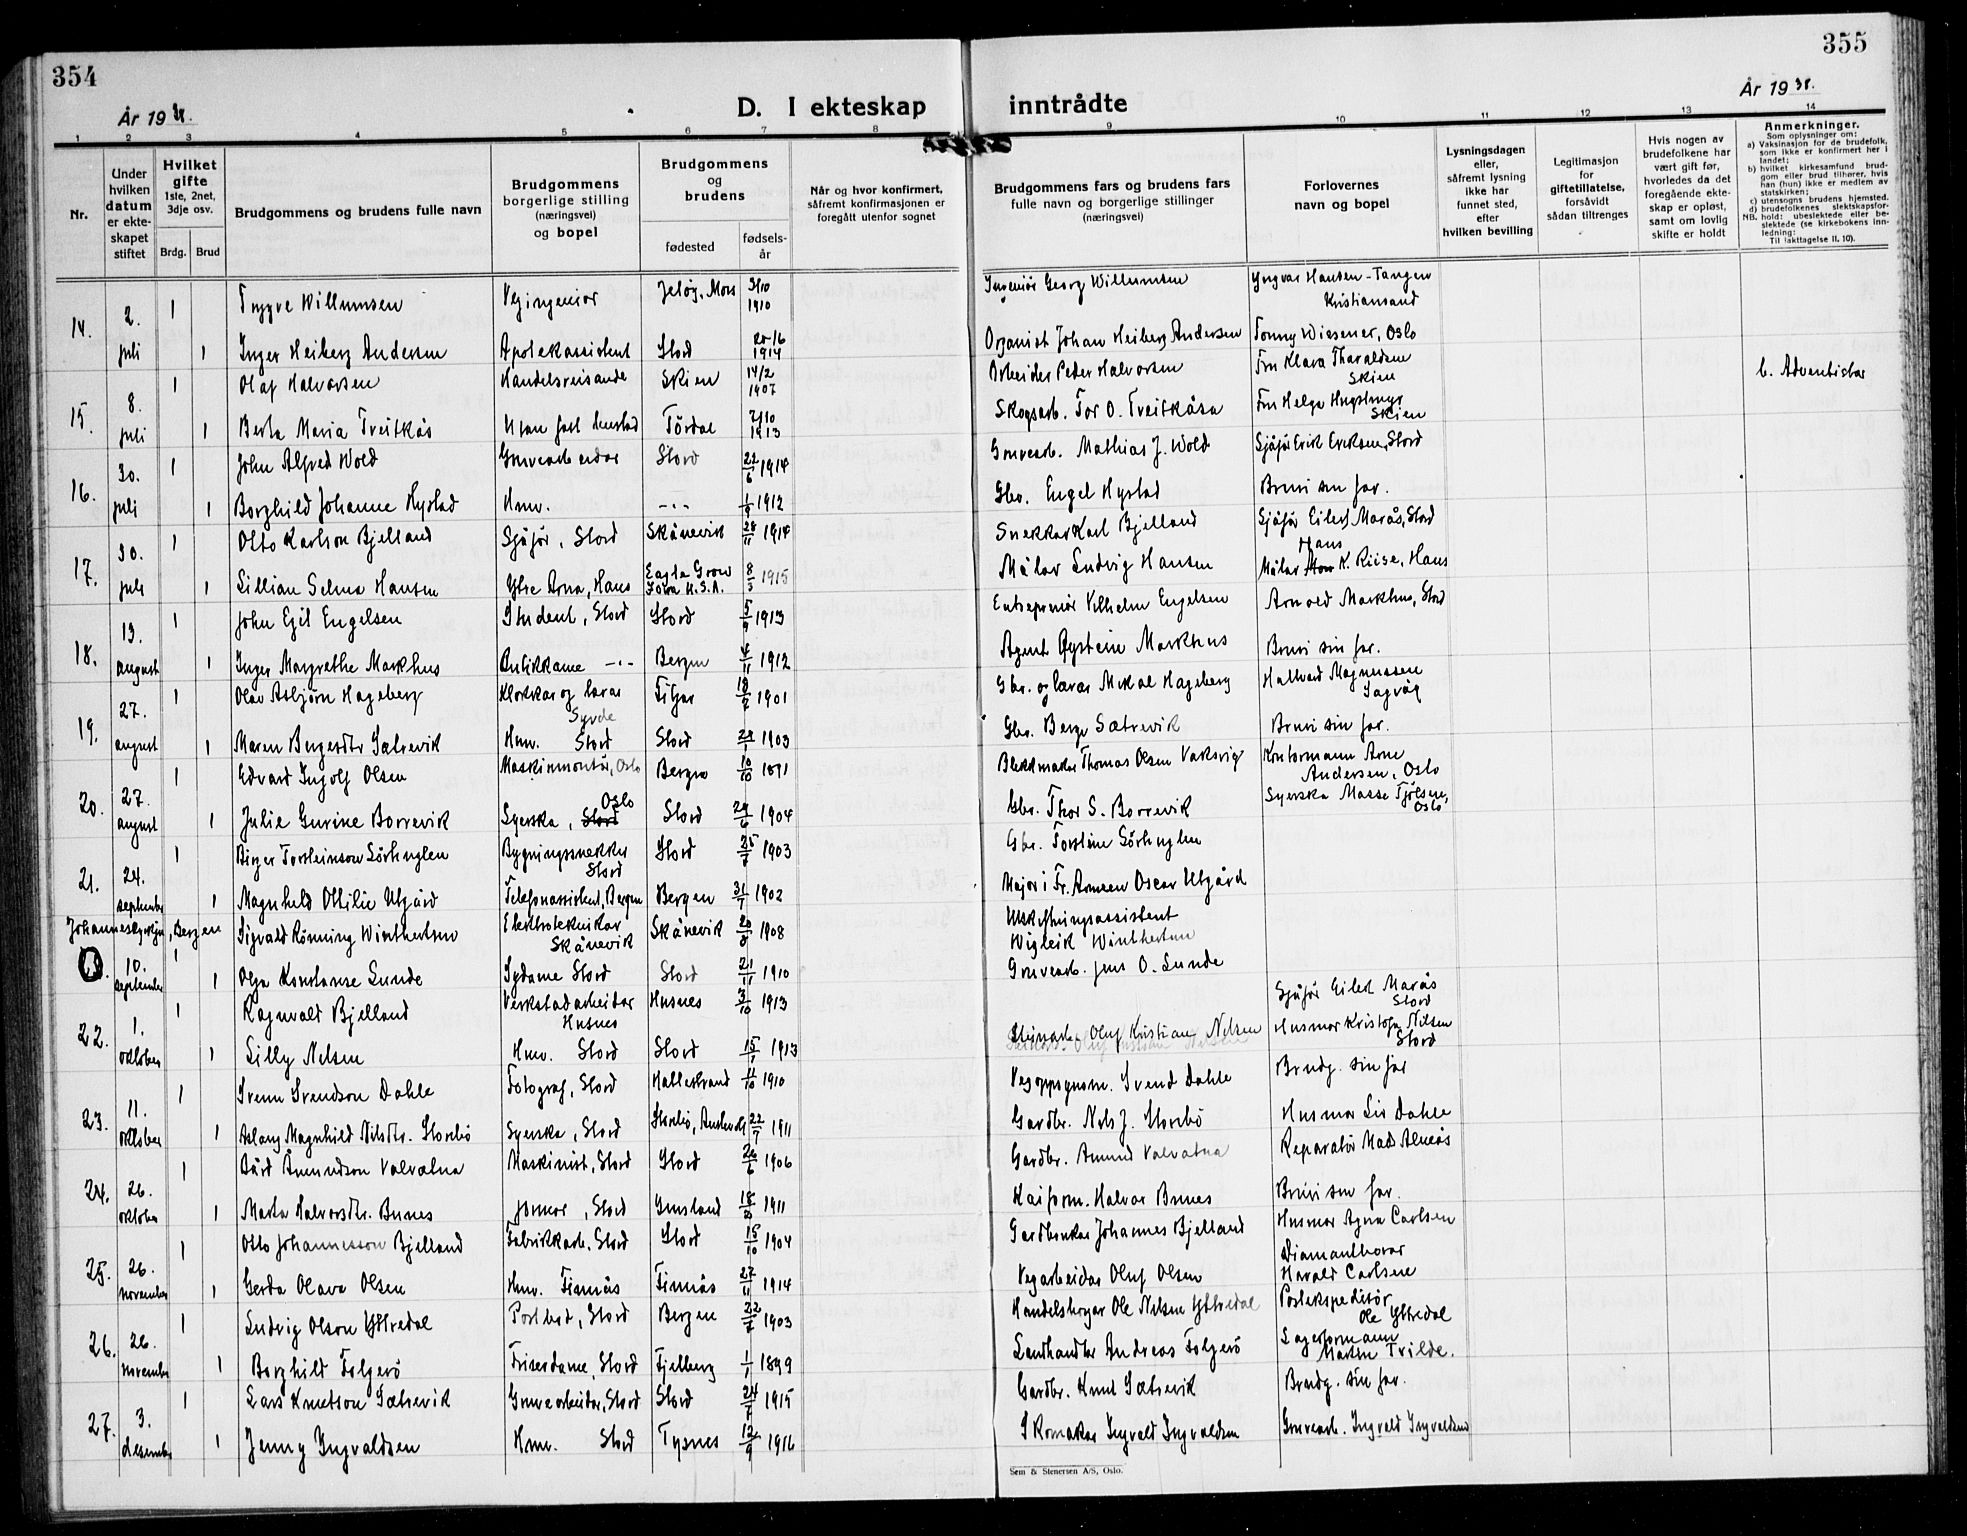 354
355
År 1938.
D. I ekteskap
inntrådte
År 1938.
1 2 3 4 5 6 7 8 9 10 11 12 13 14
Nr.
Under hvilken datum er ekteskapet stiftet
Hvilket gifte
1ste, 2net, 3dje osv.
Brdg. Brud
Brudgommens og brudens fulle navn
Brudgommens borgerlige stilling (næringsvei) og bopel
Brudgommens og brudens
fødested
fødselsår
Når og hvor konfirmert, såfremt konfirmasjonen er foregått utenfor sognet
Brudgommens fars og brudens fars fulle navn og borgerlige stillinger (næringsvei)
Forlovernes navn og bopel
Lysningsdagen eller, såfremt lysning ikke har funnet sted, efter hvilken bevilling
Legitimasjon for giftetillatelse, forsåvidt sådan tiltrenges
Hvis nogen av brudefolkene har vært gift før, hvorledes da det foregående ekteskap er opløst, samt om lovlig skifte er holdt
Anmerkninger.
Som oplysninger om:
a) Vaksinasjon for de brudefolk, som ikke er konfirmert her i landet;
b) hvilket kirkesamfund brudgom eller brud tilhører, hvis han (hun) ikke er medlem av statskirken;
c) utensogns brudens hjemsted.
d) brudefolkenes slektskapsforhold: ubeslektede eller beslektede (se kirkebokens innledning:
NB. Til iakttagelse II. 10).
14. 2. juli 1 Trygve Willumsen Vegingeniør Jeløy, Moss 3/10 1910 Ingeniør Georg Willumsen Yngvar Hansen-Tangen Kristiansand
1 Inger Heiberg Andersen Apotekassistent Stord 1914 Organist Johan Heiberg Andersen Tonny Wiesener, Oslo
15. 8. juli 1 Olaf Halvorsen Handelsreisande Skien 14/2 1907 Arbeider Peder Halvorsen Fru Klara Tharaldsen Skien b. Adventistar
1 Berta Maria Treitkås Utan fast bustad Tördal 7/10 1913 Skogsarb. Tor O. Treitkåsa Fru Helga Skien
16. 30. juli 1 John Alfred Wold Gruvearbeidar Stord 22/6 1914 Gruvearb. Mathias J. Wold Sjåfør Erik Eriksen, Stord
1 Borghild Johanne Hystad Hmv. -"- 1912 Gbr. Engel Hystad Bruri sin far.
17. 30. juli 1 Otto Karlson Bjelland Sjåfør, Stord Skånevik 28/11 1914 Snekkar Karl Bjelland Sjåfør Eilert Marås, Stord
1 Lillian Selma Hansen Ytre Arna, Haus Eagle Grow Iowa U.S.A. 8/3 1915 Målar Ludvig Hansen Målar Hans K. Riise, Haus
18. 13. august 1 John Egil Engelsen Student, Stord Stord 5/9 1913 Entreprenør Vilhelm Engelsen Arnold Markhus, Stord
1 Inger Margrethe Markhus Butikkdame -"- Bergen 4/11 1912 Agent Øystein Markhus Bruri sin far.
19. 27. august 1 Olav Asbjørn Hageberg Klokkar og lærar Syvde Fitjar 1901 Gbr. og lærar Mikal Hageberg Hallvard Magnussen Sagvåg
1 Maren Bergesdtr Sætrevik Hmv. Stord Stord 1903 Gbr. Berge Sætrevik Bruri sin far.
20. 27. august 1 Edvard Ingolf Olsen Maskinmontør, Oslo Bergen 10/10 1891 Blikkmaker Thomas Olsen Vaksvig Kontormann Arne Andersen, Oslo
1 Julie Gurine Borrevik Syerska, Stord Oslo Stord 1904 Gbr. Thor S. Borrevik Syerska Masse Oslo
21. 24. september 1 Birger Torsteinson Sörhuglen Bygningssnekker Stord Stord 1903 Gbr. Torstein Sörhuglen
1 Magnhild Ottilie Utgård Telefonassistent, Bergen Bergen 31/1 1902 Major i Fr. Armeen Oscar Utgård
Johanneskyrkja, Bergen
10. september 1 Sigvald Rönning Winthertun Elektroteknikar Skånevik Skånevik 20/8 1908 Utskiftningsassistent Wigleik Winthertun
1 Olga Konstanse Lunde Sydame Stord Stord 21/11 1910 Gruvearb. Jens O. Lunde
22. 1. oktober 1 Ragnvald Bjelland Verkstadarbeidar Husnes Husnes 3/10 1913 Sjåfør Eilert Marås Stord
1 Lilly Nelsen Hmv. Stord Stord 15/1 1913 Oluf Kristian Nelsen Husmor Kristofa Nilsen Stord
23. 11. oktober 1 Svenn Svendson Dahle Fotograf, Stord Hattestrand 11/10 1910 Vegoppsynsm. Svend Dahle Brudg. sin far
1 Aslaug Magnhild Nilsdtr. Storebö Syerska, Stord Storebö, Austevoll 22/7 1911 Gardbr. Nils J. Storebö Husmor Liv Dahle
24. 26. oktober 1 Bård Åmundson Valvatna Maskinist, Stord Stord 26/6 1906 Gardbr. Åmund Valvatna Reparatør Mads Alnæs
1 Marta Halvorsdtr. Bunes Jonnor, Stord Grustand 1911 Kaiform. Halvor Bunes Bruri sin far.
25. 26. november 1 Otto Johannesson Bjelland Fabrikkarb., Stord Stord 15/10 1904 Gardbrukar Johannes Bjelland Husmor Agna Carlsen
1 Gerda Olava Olsen Hmv. Finnås Finnås 27/11 1914 Vegarbeidar Oluf Olsen Diamantborar Harald Carlsen
26. 26. november 1 Ludvig Olson Yttredal Postbud, Stord Bergen 1903 Handelsborgar Ole Nilsen Yttredal Postekspeditør Ole Yttredal
1 Borghild Folgerö Friserdame, Stord Fjelberg 1/1 1899 Landhandlar Andreas Folgerö Lagerformann Trilde.
27. 3. desember 1 Lars Knutson Sætrevik Gruvearbeidar, Stord Stord 1915 Gardbr. Knut Sætrevik Brudg. sin far.
1 Jenny Ingvaldsen Hmv. Stord Tysnes 12/9 1916 Skomakar Ingvald Ingvaldsen Gruvearb. Ingvald Ingvaldsen
Sem & Stenersen A/S, Oslo.